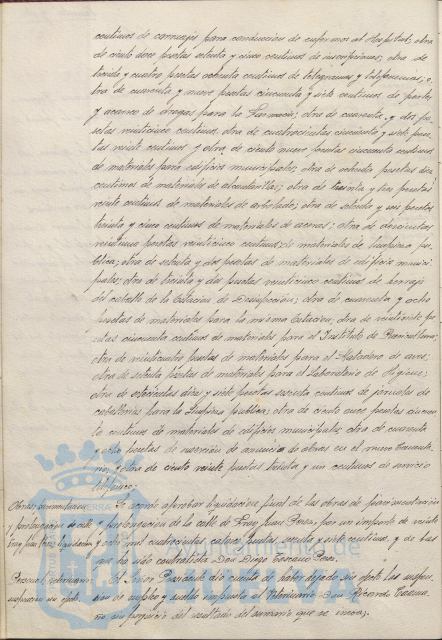 centimos de carruajes para conduccion de enfermos al Hospital; otra
de ciento doce pesetas setenta y cinco centimos de inscripciones; otra de
treinta y cuatro pesetas ochenta centimos de telegramas y telefonemas; o-
tra de cuarenta y nueve pesetas cincuenta y siete centimos de portes
y acarreo de drogas para la Farmacia; otra de cuarenta y dos pe-
setas veinticinco centimos; otra de cuatrocientas cincuenta y siete pese-
tas veinte centimos y otra de ciento nueve pesetas cincuenta centimos
de materiales para edificios municipales; otra de ochenta pesetas diez
centimos de materiales de alcantarillas; otra de treinta y tres pesetas
veinte centimos de materiales de arbolado; otra de setenta y seis pesetas
treinta y cinco centimos de materiales de aceras; otra de doscientas
veintiuna pesetas veinticinco centimos de materiales de limpieza pu-
blica; otra de setenta y dos pesetas de materiales de edificios munici-
pales; otra de treinta y dos pesetas veinticinco centimos de herraje
del caballo de la Estacion de Desinfeccion; otra de cuarenta y ocho
pesetas de materiales para la misma Estacion; otra de veintisiete pe-
setas cincuenta centimos de materiales para el Instituto de
otra de veinticuatro pesetas de materiales para el Matadero de aves;
otra de setenta pesetas de materiales para el Laboratorio de Higiene;
otra de setecientas diez y siete pesetas sesenta centimos de jornales de
caballerias para la Limpieza publica; otra de ciento once pesetas cincuen-
ta centimos de materiales de edificios municipales; otra de cuarenta
y ocho pesetas de insercion de anuncio de obras en el muro
y otra de ciento veinte pesetas treinta y un centimos de servicio
telefonico.
Obras: Se acordó aprobar liquidacion final de las obras de pavimentacion
y prolongacion calle y prolongacion de la calle de Fray Juan Perez, por un importe de veinte
Fray Juan Perez, liquidacion y ocho mil cuatrocientas catorce pesetas sesenta y siete centimos, y de las
que ha sido contratista Don Diego
Personal: veterinario El Señor Presidente dio cuenta de haber dejado sin efecto las suspen-
suspension sin efecto. sion de empleo y sueldo impuesta al Veterinario Don Ricardo
no sin perjuicio del resultado del sumario que se incoa;
Ayuntamiento de